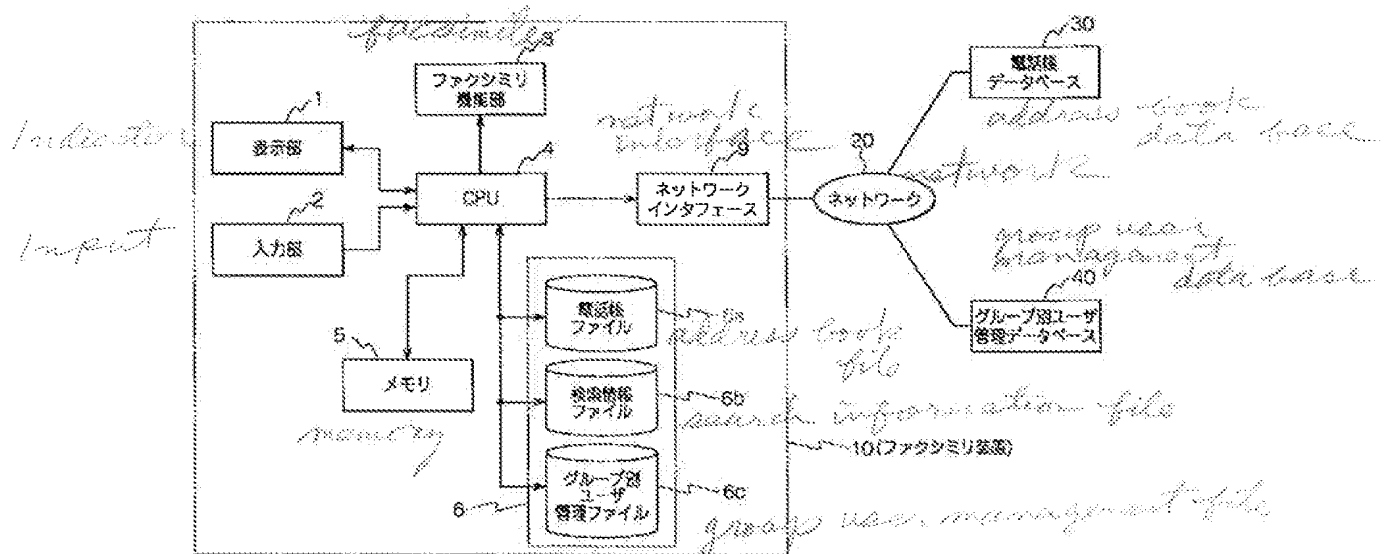 facsimile
3
ファクシミリ
機能部
1
Indicator
表示部
2
Input
入力部
4
CPU
network
interface
9
ネットワーク
インタフェース
20
network
ネットワーク
30
電話帳
データベース
address book
data base
group user
management
data base
40
グループ別ユーザ
管理データベース
5
メモリ
memory
6
電話帳
ファイル
6a
address book
file
検索情報
ファイル
6b
search information file
グループ別
ユーザ
管理ファイル
6c
group user management file
10(ファクシミリ装置)